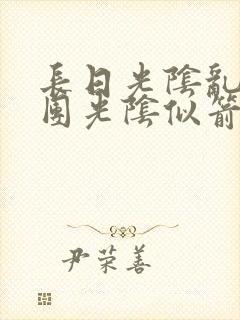 長日光陰亂
園光陰似箭
尹荣善